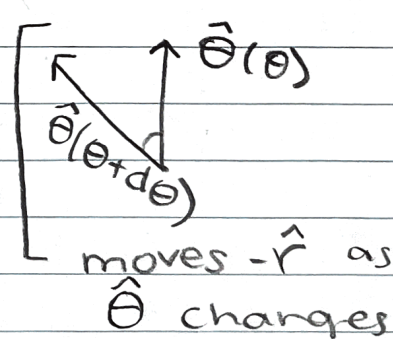 θ̂(θ)
θ̂(θ+dθ)
moves -r̂ as
θ̂ changes